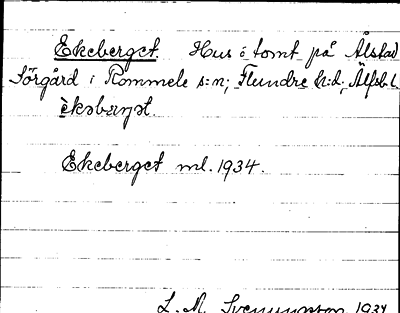 Ekeberget. Hus å tomt på Ålstad
Sörgård i Rommele s:n; Flundre h:d; Älfsb. l.
Ekeberget ml. 1934.
L. M. Svenungsson 1934